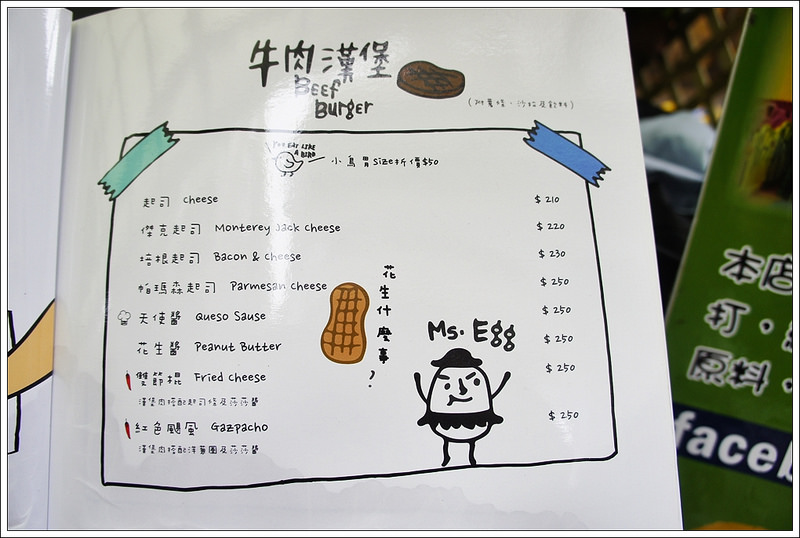 牛肉漢堡
Beef
Burger
(附薯條、沙拉及飲料)
YOU EAT LIKE
A BIRD
小鳥胃size折價$50
起司 cheese $ 210
傑克起司 Monterey Jack cheese $ 220
培根起司 Bacon & cheese $ 230
帕瑪森起司 Parmesan cheese $ 250
天使醬 Queso Sause $ 250
花生醬 Peanut Butter $ 250
雙節棍 Fried cheese $ 250
漢堡肉搭配起司條及莎莎醬
紅色颶風 Gazpacho $ 250
漢堡肉搭配洋蔥圈及莎莎醬
花生什麼事?
Ms. Egg
本店
打,
原料,
faceb